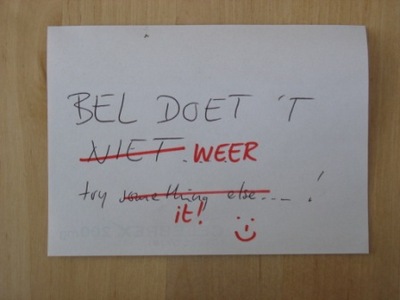 BEL DOET 'T
NIET WEER
try something else.... !
it!